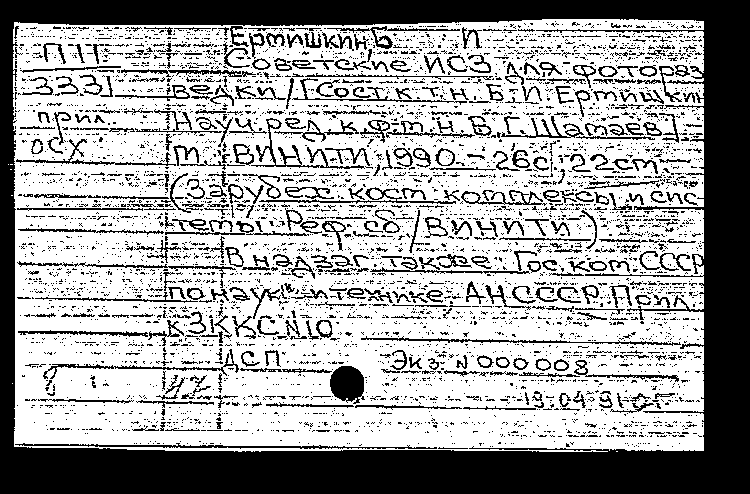 Ермишкин, Б И
П11 Советские ИСЗ для фотораз
3331 ведки /[Сост. к.т.н. Б.И. Ермишкин
прил. Науч. ред. к.ф-м.н. В.Г. Шатаев].
ОСХ М.: ВИНИТИ, 1990. - 26с.; 22 см. -
(Зарубеж. косм. комплексы и сис
темы: Реф. сб. / ВИНИТИ).
В надзаг. также: Гос. ком. СССР
по науке и технике, АН СССР. Прил.
к ЗККС N10
ДСП Экз. N 000008
8 47
19.04.91 ОГ